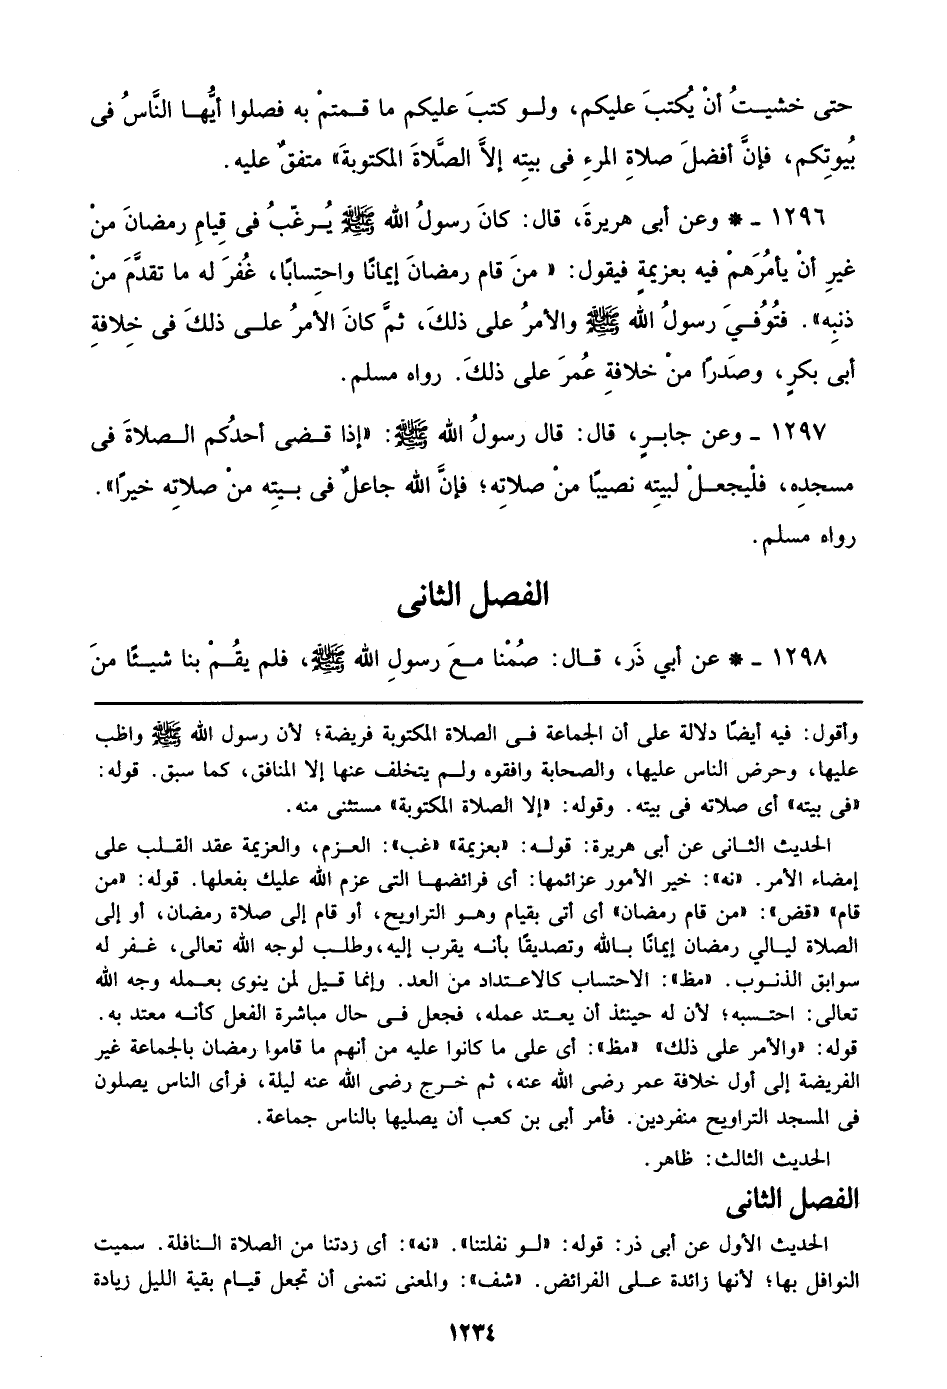 حتى خشيتُ أنْ يُكتبَ عليكم، ولو كتبَ عليكم ما قمتمْ به فصلوا أيُّها النَّاسُ فى
بُيوتِكم، فإنَّ أفضلَ صلاةِ المرءِ فى بيتِه إلاَّ الصَّلاةَ المكتوبةَ» متفقٌ عليه.
١٢٩٦ - * وعن أبى هريرةَ، قال: كانَ رسولُ الله ﷺ يُرغّبُ فى قِيامِ رمضانَ منْ
غيرِ أنْ يأمُرَهمْ فيه بعزيمةٍ فيقول: « منَ قام رمضانَ إيمانًا واحتِسابًا، غُفرَ له ما تقدَّمَ منْ
ذنبِه». فتُوُفيَ رسولُ الله ﷺ والأمرُ على ذلكَ، ثمَّ كانَ الأمرُ على ذلكَ فى خلافةِ
أبى بكرٍ، وصَدرًا منْ خلافةِ عُمرَ على ذلكَ. رواه مسلم.
١٢٩٧ - وعن جابرٍ، قال: قال رسولُ الله ﷺ: «إذا قضى أحدُكم الصلاةَ فى
مسجدِه، فلْيجعلْ لبيتِه نصيبًا منْ صلاتِه؛ فإنَّ الله جاعلٌ فى بيتِه منْ صلاتِه خيرًا».
رواه مسلم.
الفصل الثانى
١٢٩٨ - * عن أبي ذَر، قال: صُمْنا معَ رسولِ الله ﷺ، فلم يقُمْ بنا شيئًا منَ
وأقول: فيه أيضًا دلالة على أن الجماعة فى الصلاة المكتوبة فريضة؛ لأن رسول الله ﷺ واظب
عليها، وحرض الناس عليها، والصحابة وافقوه ولم يتخلف عنها إلا المنافق، كما سبق. قوله:
«فى بيته» أى صلاته فى بيته. وقوله: «إلا الصلاة المكتوبة» مستثنى منه.
الحديث الثانى عن أبى هريرة: قوله: «بعزيمة» «غب»: العزم، والعزيمة عقد القلب على
إمضاء الأمر. «نه»: خير الأمور عزائمها: أى فرائضها التى عزم الله عليك بفعلها. قوله: «من
قام» «قض»: «من قام رمضان» أى أتى بقيام وهو التراويح، أو قام إلى صلاة رمضان، أو إلى
الصلاة ليالي رمضان إيمانًا بالله وتصديقًا بأنه يقرب إليه،وطلب لوجه الله تعالى، غفر له
سوابق الذنوب. «مظ»: الاحتساب كالاعتداد من العد. وإنما قيل لمن ينوى بعمله وجه الله
تعالى: احتسبه؛ لأن له حينئذ أن يعتد عمله، فجعل فى حال مباشرة الفعل كأنه معتد به.
قوله: «والأمر على ذلك» «مظ»: أى على ما كانوا عليه من أنهم ما قاموا رمضان بالجماعة غير
الفريضة إلى أول خلافة عمر رضى الله عنه، ثم خرج رضى الله عنه ليلة، فرأى الناس يصلون
فى المسجد التراويح منفردين. فأمر أبى بن كعب أن يصليها بالناس جماعة.
الحديث الثالث: ظاهر.
الفصل الثانى
الحديث الأول عن أبى ذر: قوله: «لو نفلتنا». «نه»: أى زدتنا من الصلاة النافلة. سميت
النوافل بها؛ لأنها زائدة على الفرائض. «شف»: والمعنى نتمنى أن تجعل قيام بقية الليل زيادة
١٢٣٤